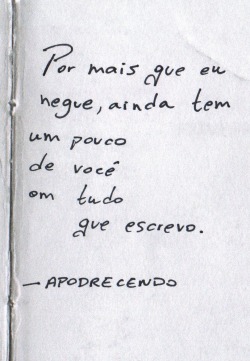 Por mais que eu
negue, ainda tem
um pouco
de você
em tudo
que escrevo.
— APODRECENDO